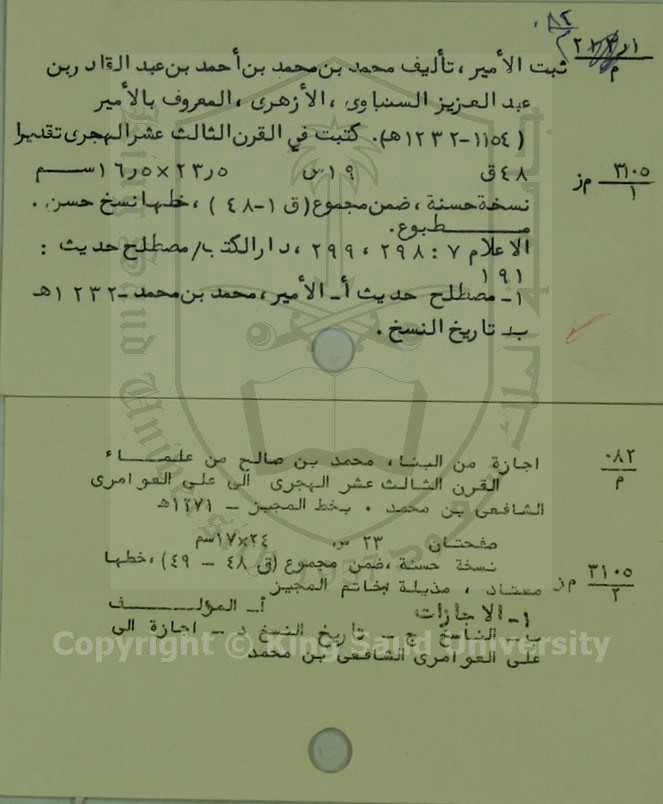 ثبت الأمير ، تأليف محمد بن محمد بن أحمد بن عبد القادر بن
عبد العزيز السنباوى ، الأزهرى ، المعروف بالأمير
( ١١٥٤-١٢٣٢هـ). كتبت في القرن الثالث عشر الهجرى تقديرا
٤٨ق ١٩س ٢٣٫٥×١٦٫٥ســم
٣١٠٥ م ز
١
نسخة حسنة ، ضمن مجموع (ق ١-٤٨ ) ، خطها نسخ حسن .
مـــطبوع.
الاعلام ٧ : ٢٩٨ ، ٢٩٩ ، دار الكتب/ مصطلح حديث :
١٩١
١- مصطلح حديث أ- الأمير ، محمد بن محمد -١٢٣٢هـ
بـ تاريخ النسخ .
٠٨٢
م
اجازة من البنا، محمد بن صالح من علمــاء
القرن الثالث عشر الهجرى الى على العوامرى
الشافعى بن محمد . بخط المجيز – ١٢٧١هـ
صفحتان ٢٣ س، ٢٤×١٧سم
نسخة حسنة ،ضمن مجموع (ق ٤٨ – ٤٩) ،خطها
٣١٠٥ م ز
٢
معتاد ، مذيلة بخاتم المجيز
١- الاجازات أ- المؤلــف
ب- الناسخ ج – تاريخ النسخ د – اجازة الى
على العوامرى الشافعى بن محمد
Copyright © King Saud University